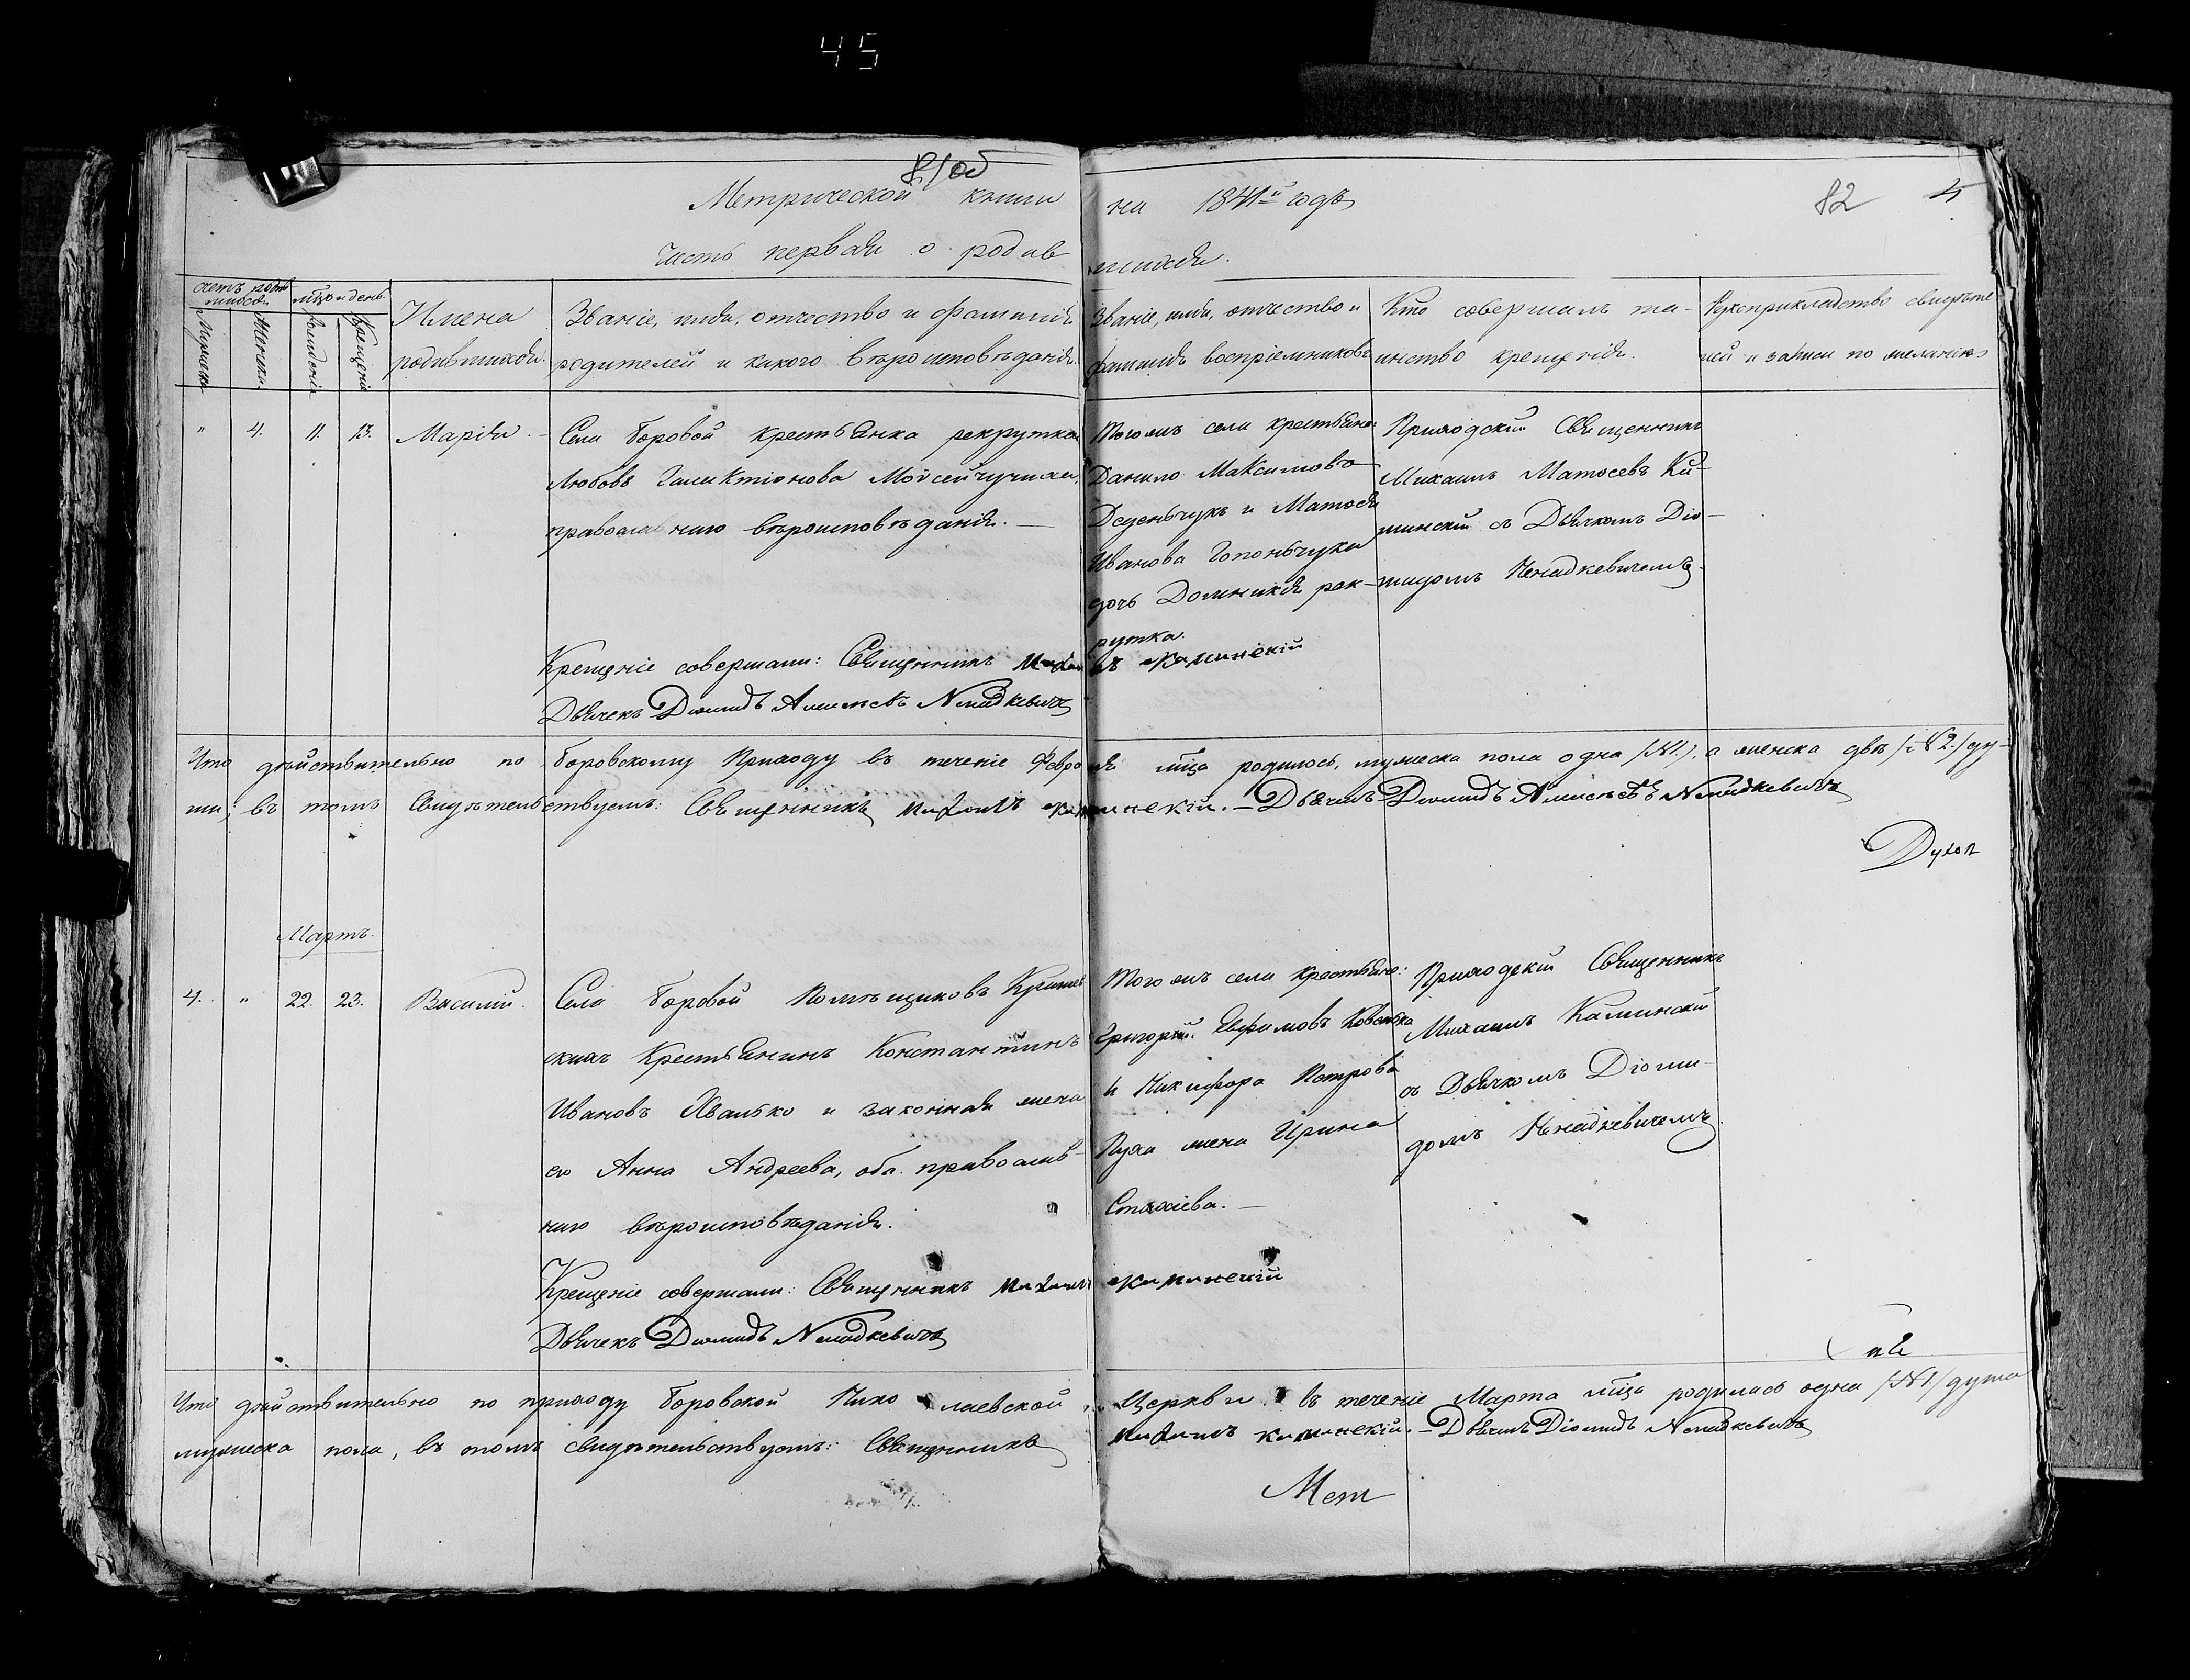 45
81об
Метрической книги на 1841й годъ
82 4
Часть первая о родившихся.
счетъ родившихся
мѣсяцъ и день
Мужеска
Женска
Рожденія
Крещенія
Имена родившихся.
Званіе, имя, отчество и фамилія
родителей и какого вѣроисповѣданія.
Званіе, имя, отчество и
фамилія воспріемниковъ
Кто совершалъ та-
инство крещенія.
Рукоприкладство свидѣте
лей и записи по желанію
" 4. 11. 13. Марія.
Села Боровой крестьянка рекрутка
Любовь Галактіонова Мойсейчукова
православнаго вѣроисповѣданія. —
Тогожъ села крестьяне
Данило Максимовъ
Деденьчукъ и Матѳея
Иванова Гопоньчука
дочь Доминикія рек-
рутка.
Приходскій Священникъ
Михаилъ Матѳеевъ Ка-
минскій съ Дьячкомъ Діо-
мидомъ Ненадкевичемъ.
Крещеніе совершали: Священникъ Михаилъ Каминскій
Дьячекъ Диомидъ Алексѣевъ Ненадкевичъ
Что дѣйствительно по Боровскому Приходу въ теченіе Февраля мѣсяца родилось, мужеска пола одна /№1./, а женска двѣ /№2./ ду-
ши; въ томъ свидѣтельствуемъ: Священникъ Михаилъ Каминскій. — Дьячекъ Диомидъ Алексѣевъ Ненадкевичъ
Духов
Мартъ.
4. " 22. 23. Василій.
Села Боровой Помѣщиковъ
скихъ Крестьянинъ Константинъ
Ивановъ Хвалько и законная жена
его Анна Андреева, оба православ-
наго вѣроисповѣданія.
Тогожъ села крестьяне:
Григорій Евфимовъ
и Никифора Петрова
Пуха жена Ирина
Стахіева. —
Приходскій Священникъ
Михаилъ Каминскій
съ Дьячкомъ Діоми-
домъ Ненадкевичемъ.
Крещеніе совершали: Священникъ Михаилъ Каминскій
Дьячекъ Диомидъ Ненадкевичъ
Что дѣйствительно по приходу Боровской Николаевской Церкви въ теченіе Марта мѣсяца родилась одна /№1/ душа
мужеска пола, въ томъ свидѣтельствуемъ: Священникъ Михаилъ Каминскій. — Дьячекъ Діомидъ Ненадкевичъ
Мет